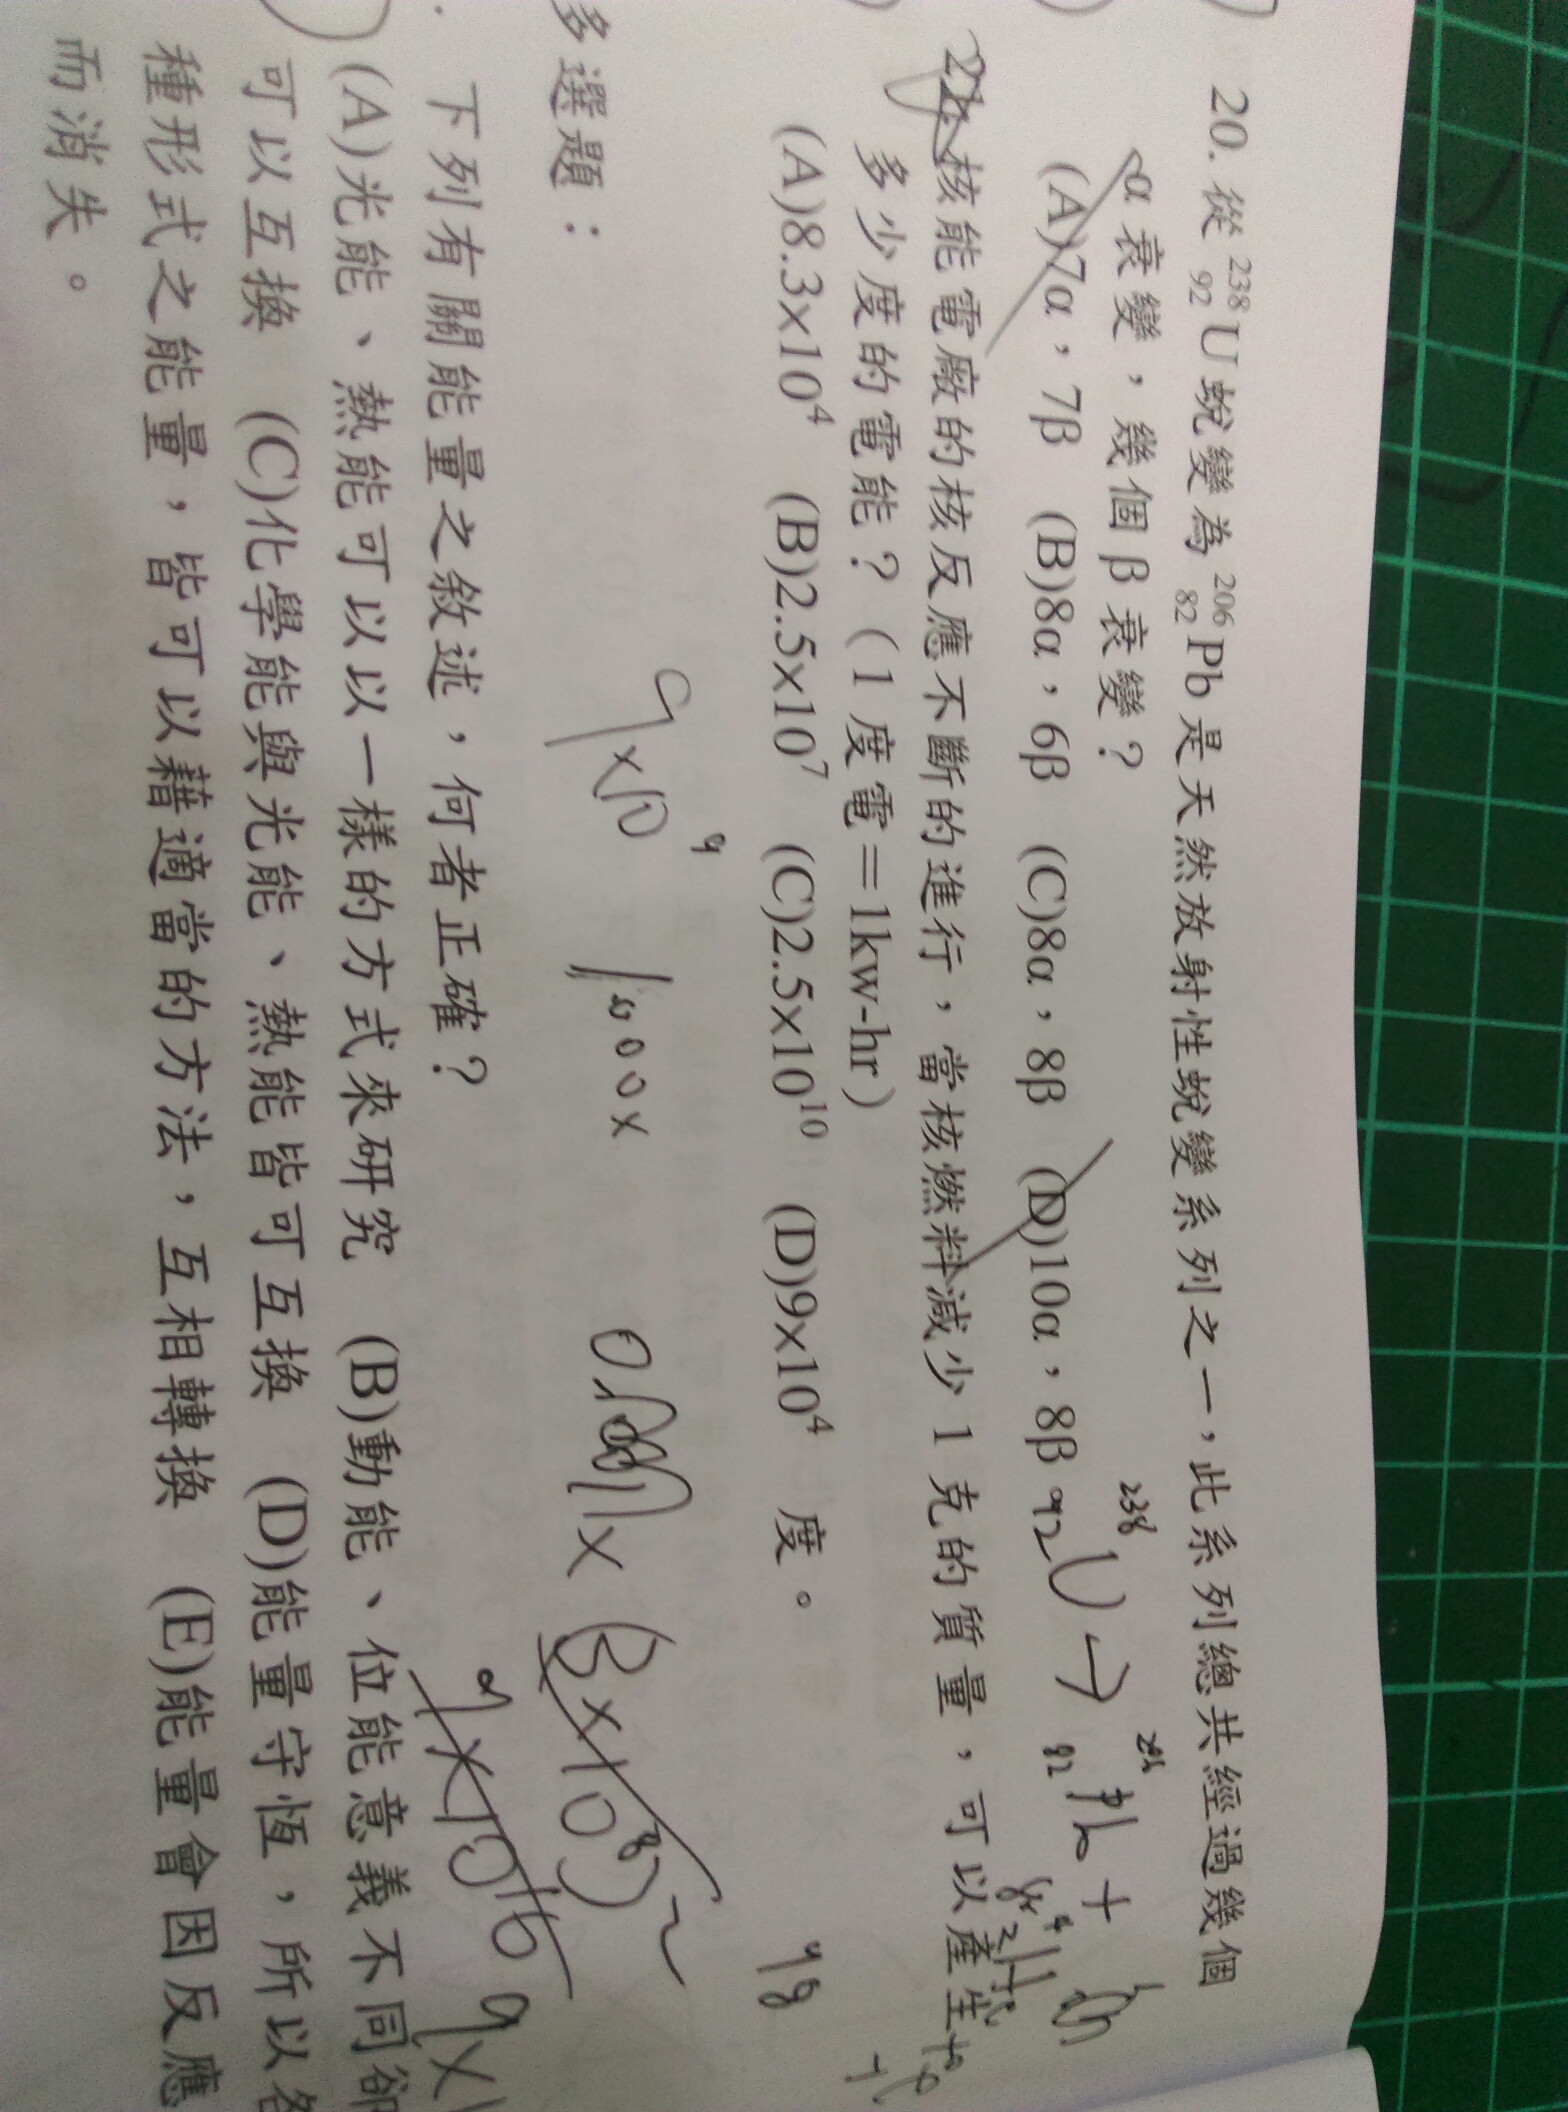 20. 從 ²³⁸₉₂U 蛻變為 ²⁰⁶₈₂Pb 是天然放射性蛻變系列之一，此系列總共經過幾個
α 衰變，幾個 β 衰變？
(A)7α，7β (B)8α，6β (C)8α，8β (D)10α，8β
238
92 U → 82 Pb +
21. 核能電廠的核反應不斷的進行，當核燃料減少 1 克的質量，可以產生
多少度的電能？（1 度電＝1kw-hr）
(A)8.3×10⁴ (B)2.5×10⁷ (C)2.5×10¹⁰ (D)9×10⁴ 度。
9×10⁹ 1000× 0.001× (3×10⁸)²
98
9×10¹⁶
多選題：
下列有關能量之敘述，何者正確？
(A)光能、熱能可以以一樣的方式來研究 (B)動能、位能意義不同卻
可以互換 (C)化學能與光能、熱能皆可互換 (D)能量守恆，所以各
種形式之能量，皆可以藉適當的方法，互相轉換 (E)能量會因反應
而消失。